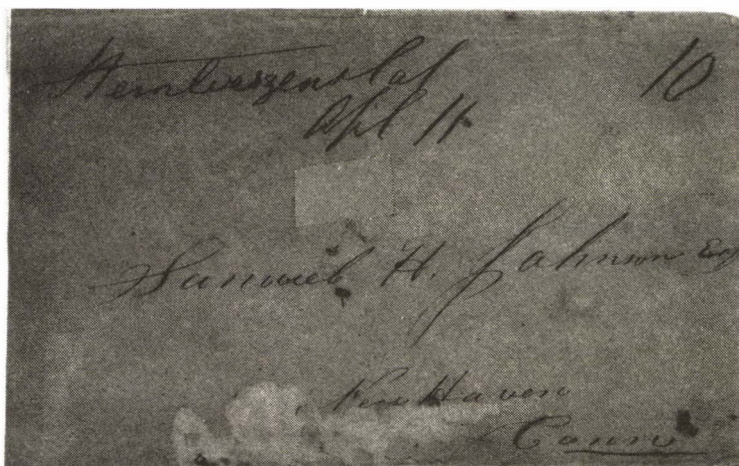 10
Apl 11
Samuel H. Johnson Esq
New Haven
Conn